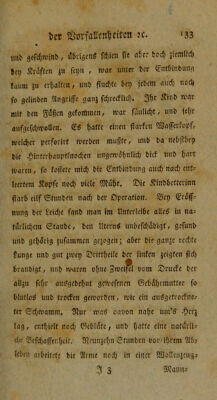 der Vorfallenheiten ꝛc. 133
und geschwind, übrigens schien sie aber doch ziemlich
bey Kräften zu seyn, war unter der Entbindung
kaum zu erhalten, und fluchte bey jedem auch noch
so gelinden Angriffe ganz schrecklich. Ihr Kind war
mit den Füßen gekommen, war faulicht, und sehr
aufgeschwollen. Es hatte einen starken Wasserkopf,
welcher perforirt werden mußte, und da nebstbey
die Hinterhauptsnochen ungewöhnlich dick und hart
waren, so kostete mich die Entbindung auch nach ent-
leertem Kopfe noch viele Mühe. Die Kindbetterinn
starb eilf Stunden nach der Operation. Bey Eröff-
nung der Leiche fand man im Unterleibe alles in na-
türlichem Stande, den Uterus unbeschädigt, gesund
und gehörig zusammen gezogen; aber die ganze rechte
Lunge und gut zwey Drittheile der linken zeigten sich
brandigt, und waren ohne Zweifel vom Drucke der
allzu sehr ausgedehnt gewesenen Gebährmutter so
blutlos und trocken geworden, wie ein ausgetrockne-
ter Schwamm. Nur was davon nahe um's Herz
lag, enthielt noch Geblüte, und hatte eine natürli-
che Beschaffenheit. Neunzehn Stunden vor ihrem Ab-
leben arbeitete die Arme noch in einer Wollenzeug-
J 3 Mann-